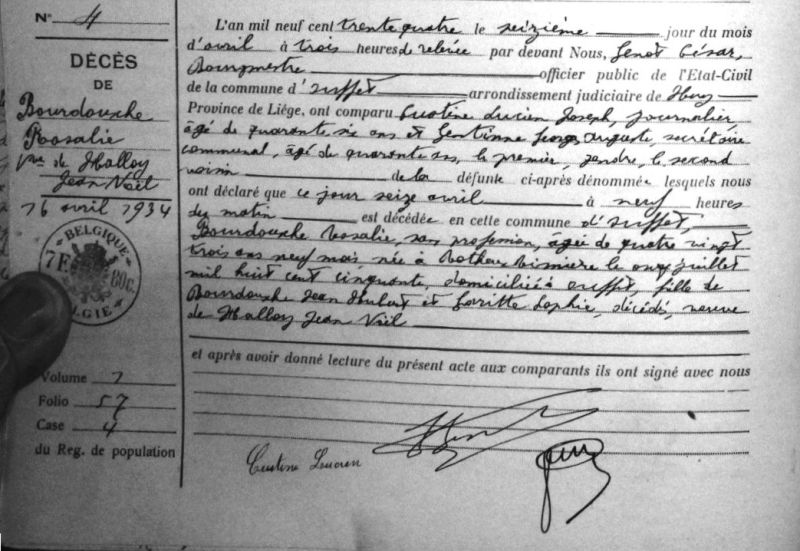 N° 4
DÉCÈS
DE
Bourdouxhe
Rosalie
vve de Halloy
Jean Noël
16 avril 1934
BELGIQUE
7F. 80c.
BELGIË
Volume 1
Folio 57
Case 4
du Reg. de population
L'an mil neuf cent trente quatre le seizième jour du mois
d'avril à trois heures de relevée par devant Nous, Genot César,
Bourgmestre officier public de l'Etat-Civil
de la commune d'Ouffet, arrondissement judiciaire de Huy
Province de Liége, ont comparu Custine Lucien Joseph, journalier
âgé de quarante six ans et Gentinne Georges Auguste, secrétaire
communal, âgé de quarante ans, le premier, gendre, le second
voisin de la défunte ci-après dénommée lesquels nous
ont déclaré que ce jour seize avril à neuf heures
du matin est décédée en cette commune d'Ouffet,
Bourdouxhe Rosalie, sans profession, âgée de quatre vingt
trois ans neuf mois née à le onze juillet
mil huit cent cinquante, domiciliée à Ouffet, fille de
Bourdouxhe Jean Hubert et Sophie, décédés, veuve
de Halloy Jean Noël
et après avoir donné lecture du présent acte aux comparants ils ont signé avec nous
Custine Lucien